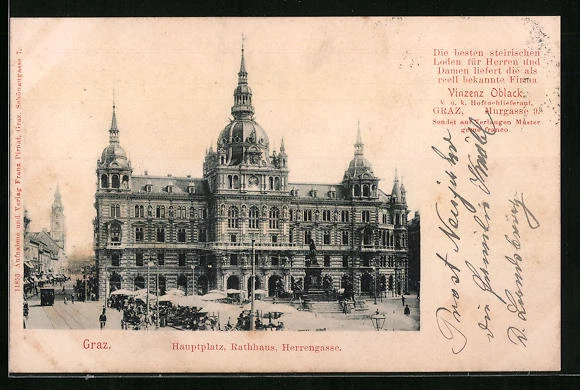 Die besten steirischen
Loden für Herren und
Damen liefert die als
reell bekannte Firma
Vinzenz Oblack,
k. u. k. Hoftuchlieferant,
GRAZ, Murgasse 9.
Sendet auf Verlangen Muster
gerne franco.
11853 Aufnahme und Verlag Franz Pirnat, Graz, Schönaugasse 7.
Prost Neujahr
Familie
Graz.
Hauptplatz, Rathhaus, Herrengasse.